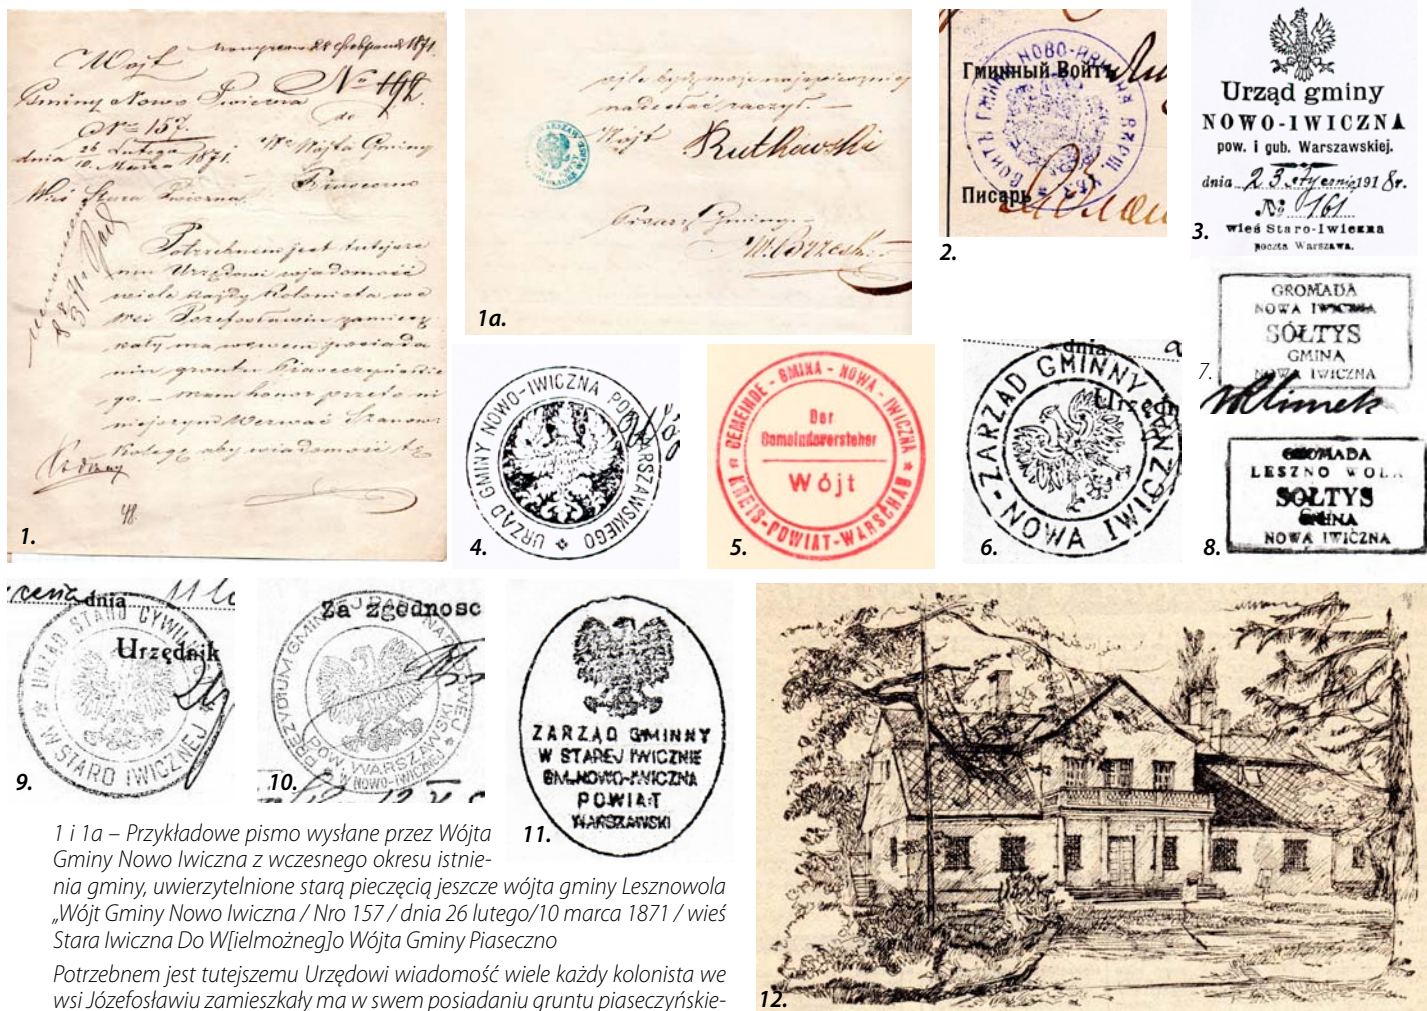 Wójt
Gminy Nowo Iwiczna
Nro 157.
dnia 26 Lutego
10 Marca 1871.
Wieś Stara Iwiczna
No 192.
do
Wo Wójta Gminy
Piaseczno
Potrzebnem jest tutejsze
mu Urzędowi wiadomość
wiele każdy kolonista we
wsi Józefosławiu zamiesz
kały ma w swem posiada
niu gruntu Piaseczyńskie
go. – mam honor przeto ni
niejszym Wezwać Szanow.
Kolegę aby wiadomość tę
48.
1.
nadesłać raczył. –
Wójt Rutkowski
Pisarz Gminy
1a.
Гминный Войтъ
Писарь
2.
Urząd gminy
NOWO-IWICZNA
pow. i gub. Warszawskiej.
dnia 23 stycznia 1918r.
№ 161
wieś Staro-Iwiczna
poczta Warszawa.
3.
URZĄD GMINY NOWO-IWICZNA POW. WARSZAWSKIEGO
4.
GEMEINDE - GMINA - NOWA - IWICZNA
Der
Gemeindevorsteher
Wójt
KREIS-POWIAT-WARSCHAU
5.
dnia
Urzędn
ZARZĄD GMINNY
NOWA IWICZNA
6.
GROMADA
NOWA IWICZNA
SÓŁTYS
GMINA
NOWA IWICZNA
7.
GROMADA
LESZNO WOLA
SOŁTYS
GMINA
NOWA IWICZNA
8.
dnia 11
Urzędnik
URZĄD STANU CYWILN
W STARO IWICZNEJ
9.
Za zgodnosc
PREZYDIUM GMINNEJ RADY NARODOWEJ
POW. WARSZAWSKI
W NOWO-IWICZNEJ
10.
ZARZĄD GMINNY
W STAREJ IWICZNIE
GM. NOWO-IWICZNA
POWIAT
WARSZAWSKI
11.
12.
1 i 1a – Przykładowe pismo wysłane przez Wójta
Gminy Nowo Iwiczna z wczesnego okresu istnie-
nia gminy, uwierzytelnione starą pieczęcią jeszcze wójta gminy Lesznowola
„Wójt Gminy Nowo Iwiczna / Nro 157 / dnia 26 lutego/10 marca 1871 / wieś
Stara Iwiczna Do W[ielmożneg]o Wójta Gminy Piaseczno
Potrzebnem jest tutejszemu Urzędowi wiadomość wiele każdy kolonista we
wsi Józefosławiu zamieszkały ma w swem posiadaniu gruntu piaseczyńskie-